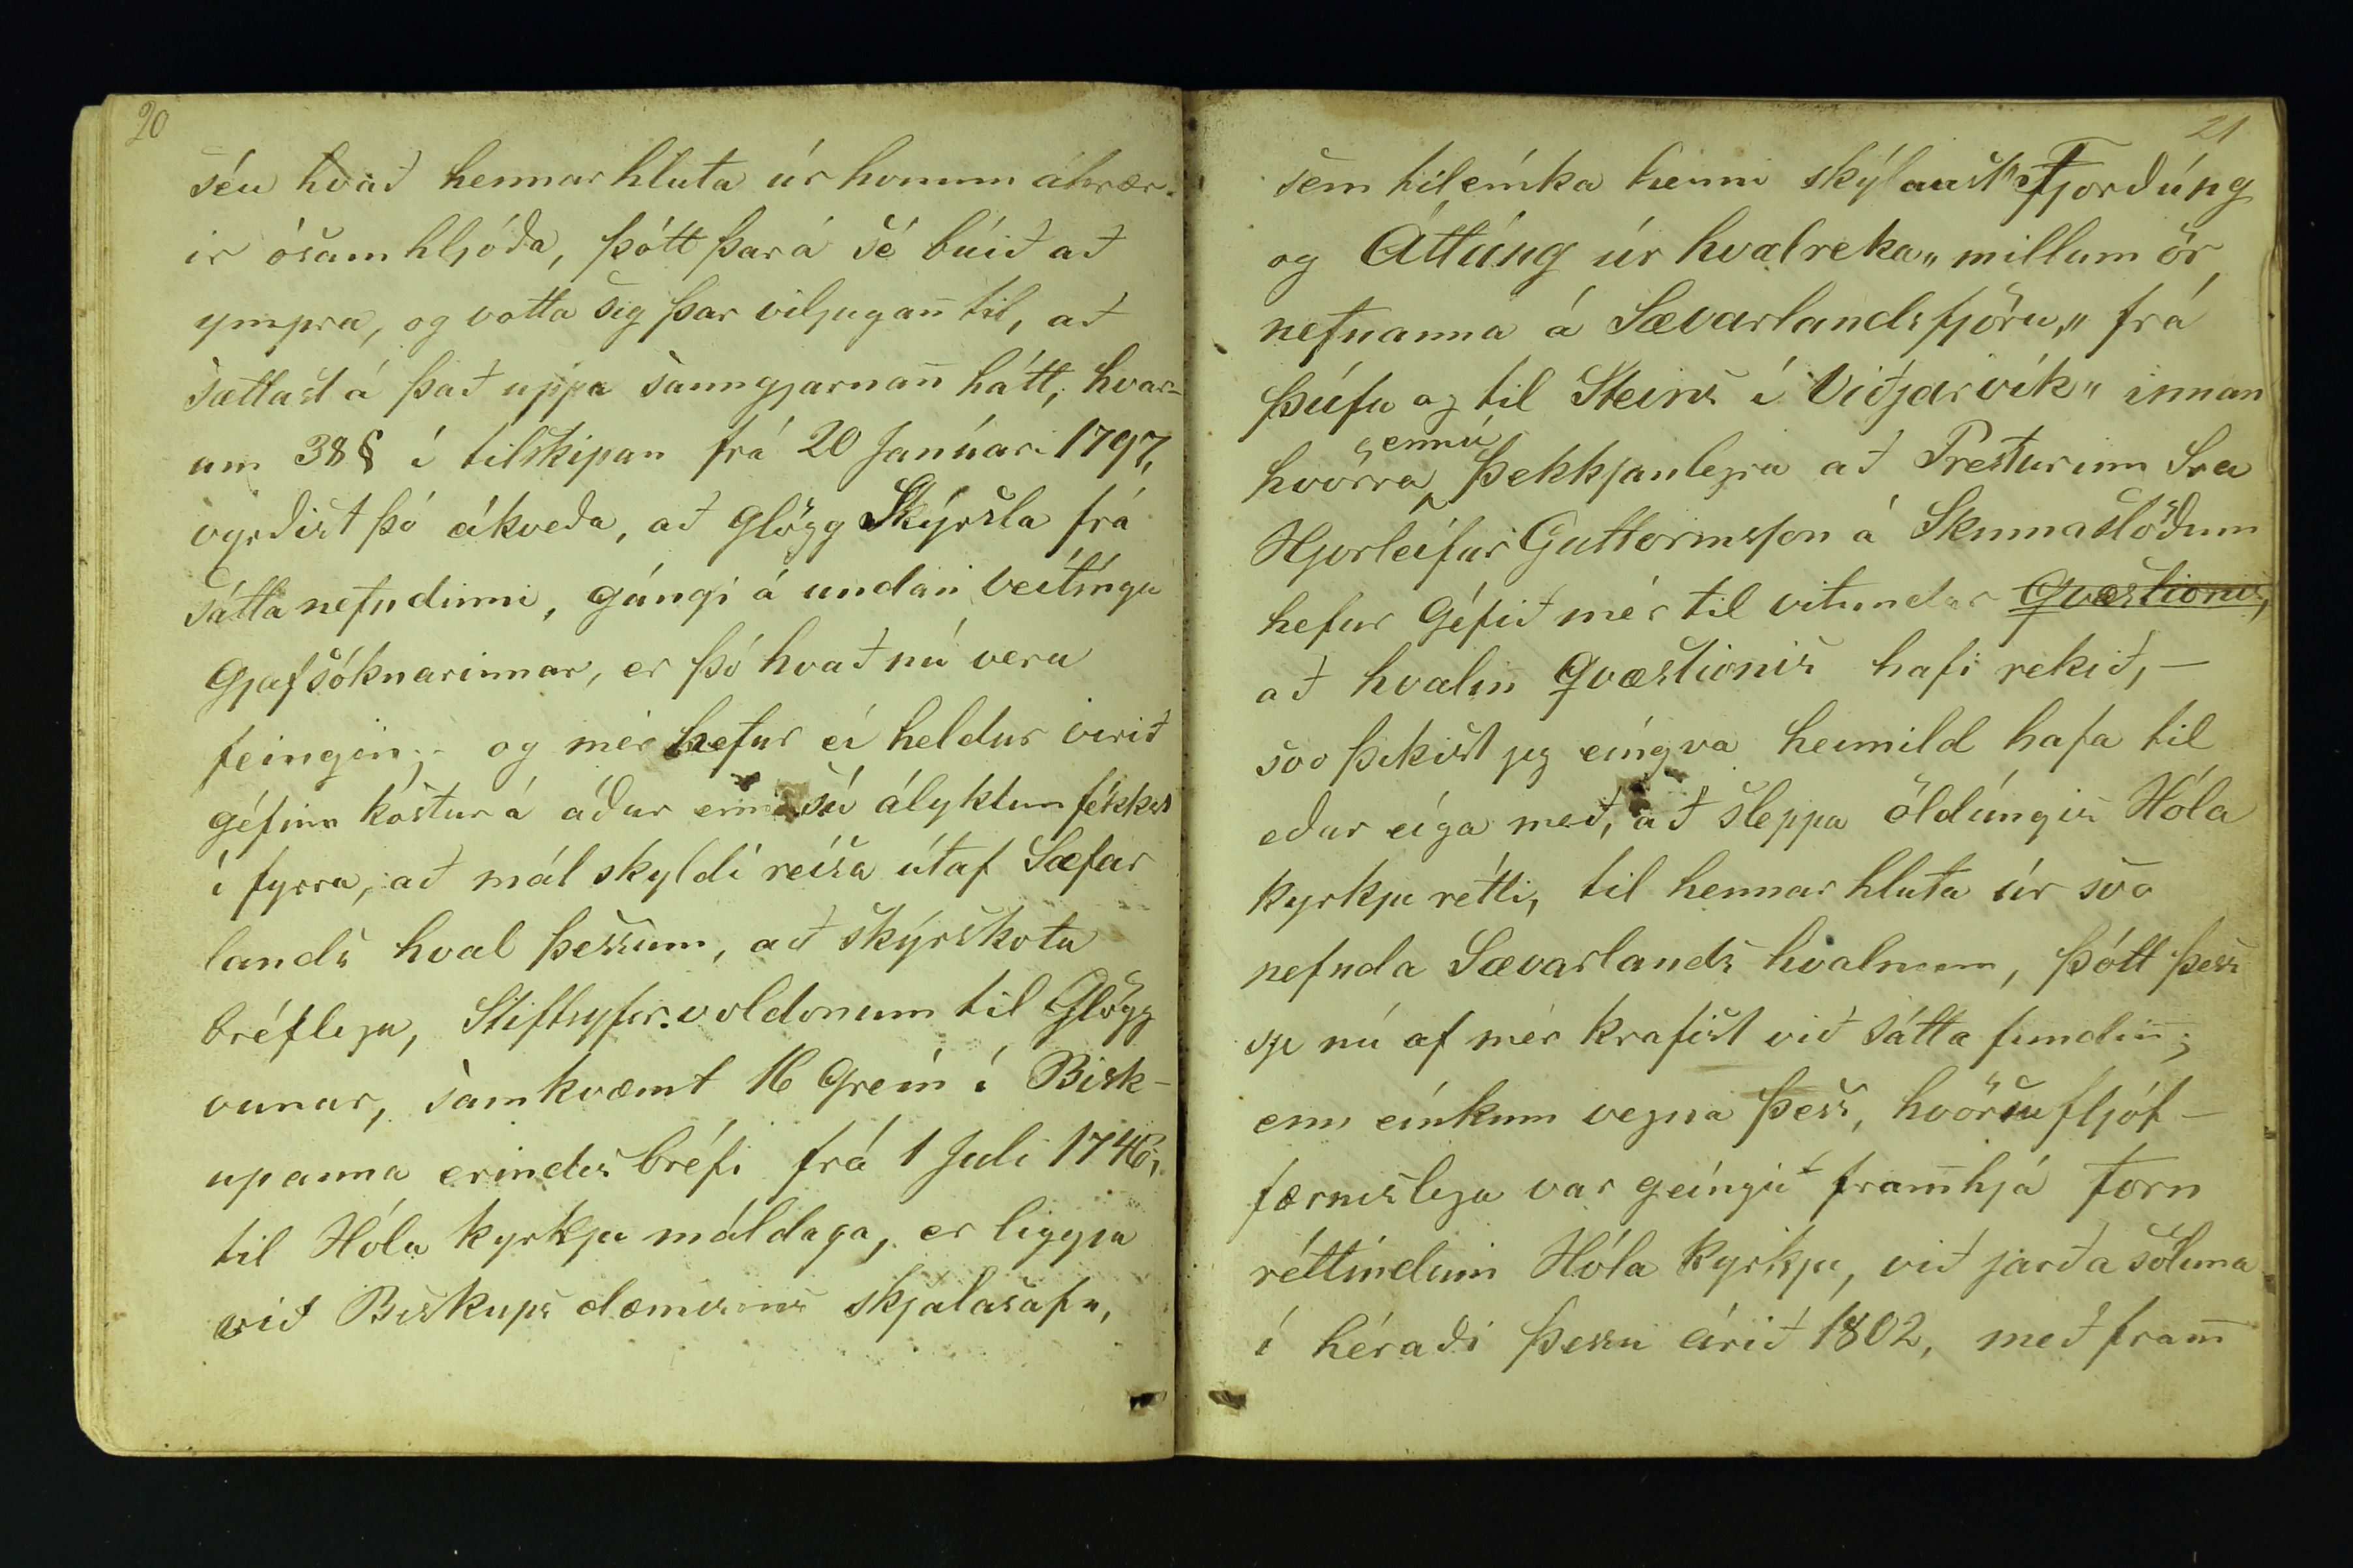 20
séu hvað hennar hluta úr honum áhrær-
ir ósamhljóða, þótt þará sé búið að
ympra, og votta sig þar viljugan̄ til, að
sættast á það uppa sanngjarnan̄ hátt; hvar-
um 38 § í tilskipan frá 20 Janúari 1797,
vyrðist þó ákveða, að glögg Skýrsla frá
sáttanefndinni, gángi á undan veitíngu
Gjafsóknarinnar, er þó hvað nú veru
feingin; - og mér hefur ei heldur virið
géfinn kostur á áður enn sú ályktun fékkst
í fyrra, að mál skyldi reisa útaf Sæfar
lands hval þessum, að skýrskota
bréflega, Stiftsyfir.voldonum til Glögg
vunar, samkvæmt 16 Grein í Bisk-
upanna erindis bréfi frá 1 Juli 1746,
til Hóla kyrkju máldaga, er liggja
við Biskups dæmisins skjalasafn,
21
sem tileinka henni skýlaust Fjorðúng
og Áttúng úr hvalreka „ millum ör
nefnanna á Sævarlandsfjöru, „ frá
Þúfu og til Steins í Viðjarvík „ innan
ennú
hvörra þekkjanlegra að Presturinn Sra
Hjorleifur Guttormsson á Skinnastöðum
hefur géfið mér til vitundar Qvæstionis,
að hvalin̄ Qvæstionis hafi rekið, -
svo þikist jeg eingva heimild hafa til
eður eiga með, að sleppa öldúngis Hóla
kyrkju rétti, til hennar hluta úr svo
nefnda Sævarlands hvalnum, þótt þess
sje nú af mér krafist við sátta fundin̄;
enn einkum vegna þess, hvörsu fljót-
færnislega var geingið fram̄hjá forn
réttindum Hóla Kyrkju, við jarða söluna
í héraði þessu árið 1802, með fram̄